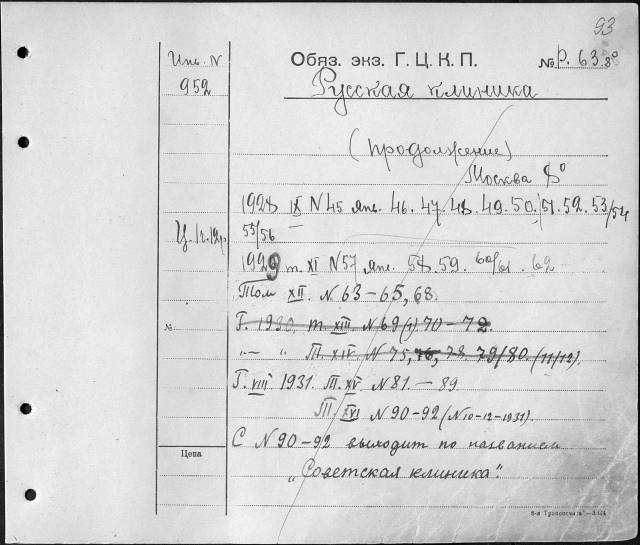 93
Инв. N
952
Обяз. экз. Г. Ц. К. П.
№ Р. 63 8°
Русская клиника
(продолжение)
Москва 8°
1928 IX N 45 янв. 46. 47. 48. 49. 50. 51. 52. 53/54
55/56
1929 т. XI N57 янв. 58. 59. 60/61. 62
Том XII. N 63–65, 68.
№
Г. 1930. т. XIII. N 69 (1) 70–72.
"– " Т. XIV. N 75, 76, 78. 79/80. (11/12).
Г. VIII 1931. Т. XV. N 81. – 89
Т. XVI N 90–92 (N 10–12–1931).
С N 90–92 выходит по названием
Цена
„Советская клиника".